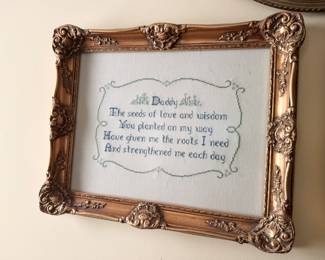 Daddy
The seeds of love and wisdom
You planted on my way
Have given me the roots I need
And strengthened me each day